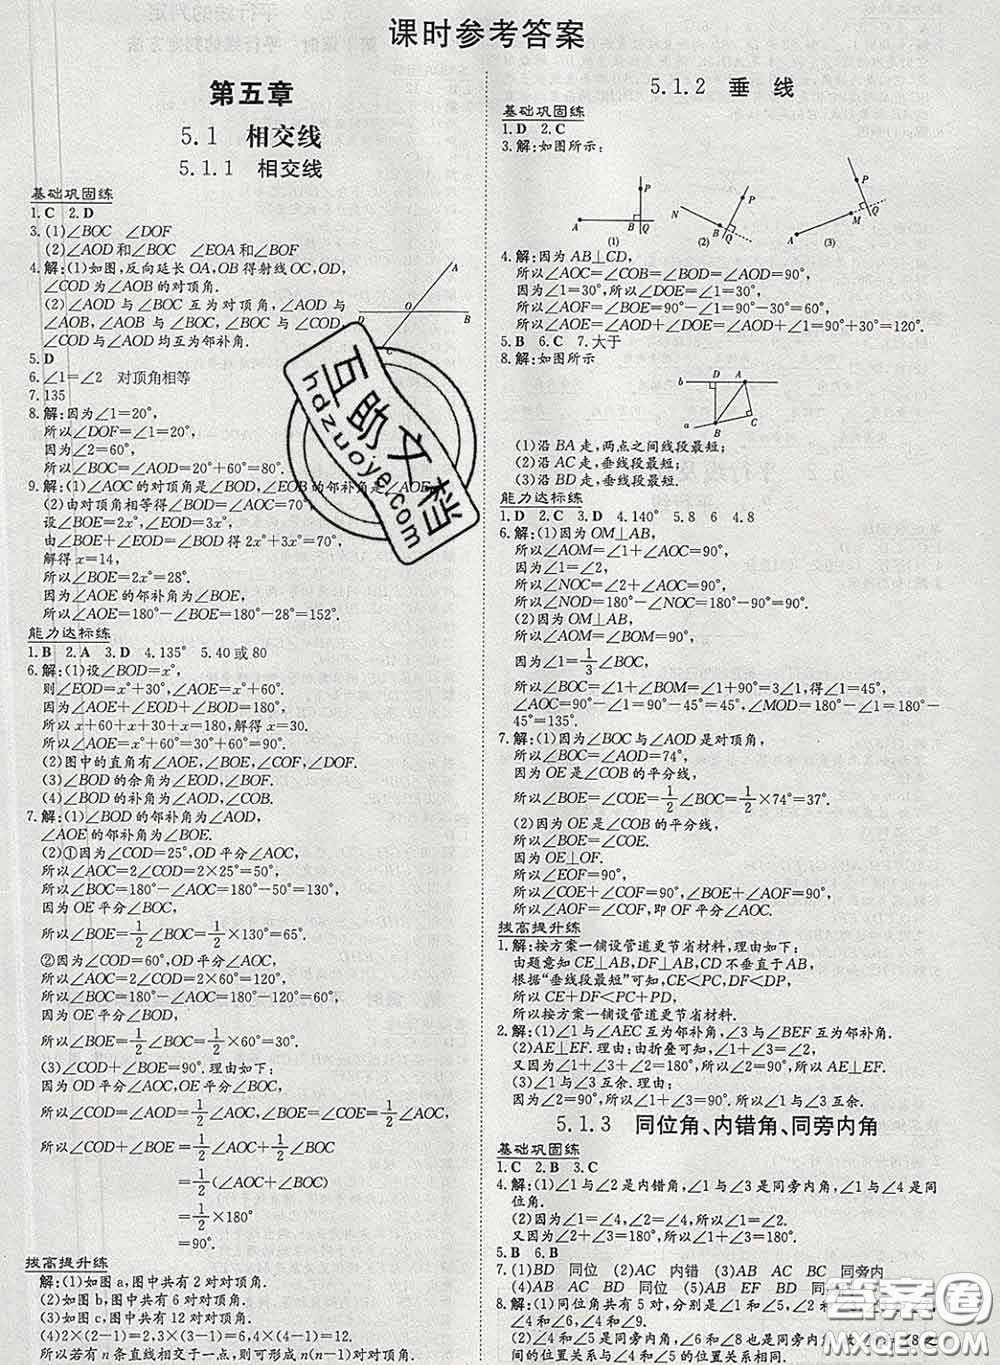 课时参考答案
第五章
5.1 相交线
5.1.1 相交线
基础巩固练
1.C 2.D
3.(1)∠BOC ∠DOF
(2)∠AOD和∠BOC ∠EOA和∠BOF
4.解:(1)如图,反向延长OA,OB得射线OC,OD,
∠COD为∠AOB的对顶角.
(2)∠AOD与∠BOC互为对顶角,∠AOD与
∠AOB,∠AOB与∠BOC,∠BOC与∠COD,
∠COD与∠AOD均互为邻补角.
A
O
D
B
C
5.D
6.∠1=∠2 对顶角相等
7.135
8.解:因为∠1=20°,
所以∠DOF=∠1=20°.
因为∠2=60°,
所以∠BOC=∠AOD=20°+60°=80°.
9.解:(1)∠AOC的对顶角是∠BOD,∠EOB的邻补角是∠AOE.
(2)由对顶角相等得∠BOD=∠AOC=70°,
设∠BOE=2x°,∠EOD=3x°,
由∠BOE+∠EOD=∠BOD得2x°+3x°=70°,
解得x=14,
所以∠BOE=2x°=28°.
因为∠AOE的邻补角为∠BOE,
所以∠AOE=180°-∠BOE=180°-28°=152°.
能力达标练
1.B 2.A 3.D 4.135° 5.40或80
6.解:(1)设∠BOD=x°,
则∠EOD=x°+30°,∠AOE=x°+60°.
因为∠AOE+∠EOD+∠BOD=180°,
所以x+60+x+30+x=180,解得x=30.
所以∠AOE=x°+60°=30°+60°=90°.
(2)图中的直角有∠AOE,∠BOE,∠COF,∠DOF.
(3)∠BOD的余角为∠EOD,∠BOF.
(4)∠BOD的补角为∠AOD,∠COB.
7.解:(1)∠BOD的邻补角为∠AOD,
∠AOE的邻补角为∠BOE.
(2)①因为∠COD=25°,OD平分∠AOC,
所以∠AOC=2∠COD=2×25°=50°,
所以∠BOC=180°-∠AOC=180°-50°=130°.
因为OE平分∠BOC,
所以∠BOE=1/2∠BOC=1/2×130°=65°.
②因为∠COD=60°,OD平分∠AOC,
所以∠AOC=2∠COD=2×60°=120°,
所以∠BOC=180°-∠AOC=180°-120°=60°.
因为OE平分∠BOC,
所以∠BOE=1/2∠BOC=1/2×60°=30°.
(3)∠COD+∠BOE=90°.理由如下:
因为OD平分∠AOC,OE平分∠BOC,
所以∠COD=∠AOD=1/2∠AOC,∠BOE=∠COE=1/2∠BOC,
所以∠COD+∠BOE=1/2∠AOC+1/2∠BOC
=1/2(∠AOC+∠BOC)
=1/2×180°
=90°.
拔高提升练
解:(1)如图a,图中共有2对对顶角.
(2)如图b,图中共有6对对顶角.
(3)如图c,图中共有12对对顶角.
(4)2×(2-1)=2,3×(3-1)=6,4×(4-1)=12,
所以若有n条直线相交于一点,则可形成n(n-1)对对顶角.
5.1.2 垂线
基础巩固练
1.D 2.C
3.解:如图所示:
P
A
B
Q
(1)
N
P
B
Q
(2)
P
A
M
Q
(3)
4.解:因为AB⊥CD,
所以∠AOC=∠COB=∠BOD=∠AOD=90°,
因为∠1=30°,所以∠DOE=∠1=30°,
所以∠AOF=∠BOE=90°-∠1=60°,
所以∠AOE=∠AOD+∠DOE=∠AOD+∠1=90°+30°=120°.
5.B 6.C 7.大于
8.解:如图所示
b
D
A
C
a
B
(1)沿BA走,两点之间线段最短;
(2)沿AC走,垂线段最短;
(3)沿BD走,垂线段最短.
能力达标练
1.D 2.C 3.D 4.140° 5.8 6 4.8
6.解:(1)因为OM⊥AB,
所以∠AOM=∠1+∠AOC=90°,
因为∠1=∠2,
所以∠NOC=∠2+∠AOC=90°,
所以∠NOD=180°-∠NOC=180°-90°=90°.
(2)因为OM⊥AB,
所以∠AOM=∠BOM=90°,
因为∠1=1/3∠BOC,
所以∠BOC=∠1+∠BOM=∠1+90°=3∠1,得∠1=45°,
∠AOC=90°-∠1=90°-45°=45°,∠MOD=180°-∠1=180°-
45°=135°.
7.解:(1)因为∠BOC与∠AOD是对顶角,
所以∠BOC=∠AOD=74°,
因为OE是∠COB的平分线,
所以∠BOE=∠COE=1/2∠BOC=1/2×74°=37°.
(2)因为OE是∠COB的平分线,
所以∠BOE=∠COE.
因为OE⊥OF.
所以∠EOF=90°,
所以∠COE+∠COF=90°,∠BOE+∠AOF=90°,
所以∠AOF=∠COF,即OF平分∠AOC.
拔高提升练
1.解:按方案一铺设管道更节省材料,理由如下:
由题意知CE⊥AB,DF⊥AB,CD不垂直于AB,
根据“垂线段最短”可知,CE<PC,DF<DP,
所以CE+DF<PC+PD,
所以按方案一铺设管道更节省材料.
2.解:(1)∠1与∠AEC互为邻补角,∠3与∠BEF互为邻补角.
(2)AE⊥EF.理由:由折叠可知,∠1+∠3=∠2,
又因为∠1+∠2+∠3=180°,所以∠2=90°,所以AE⊥EF.
(3)∠1与∠3互余.理由:
因为∠2=90°,所以∠1+∠3=90°,所以∠1与∠3互余.
5.1.3 同位角、内错角、同旁内角
基础巩固练
1.C 2.B 3.C
4.解:(1)∠1与∠2是内错角,∠1与∠3是同旁内角,∠1与∠4是同
位角.
(2)因为∠1=∠4,∠2=∠4,所以∠1=∠2.
又因为∠2+∠3=180°,所以∠1+∠3=180°.
5.B 6.B
7.(1)BD 同位 (2)AC 内错 (3)AB AC BC 同旁内
(4)AB AC BD 同位 (5)AB EF BD 同
8.解:(1)同位角共有5对,分别是∠1与∠5,∠2与∠3,
∠4与∠6,∠4与∠9.
(2)∠4与∠5的位置关系是同旁内角,
间的位置关系与∠4与∠6之间的位置关系相同.
互助文档
hdzuoye.com
答案圈
MXQE.COM